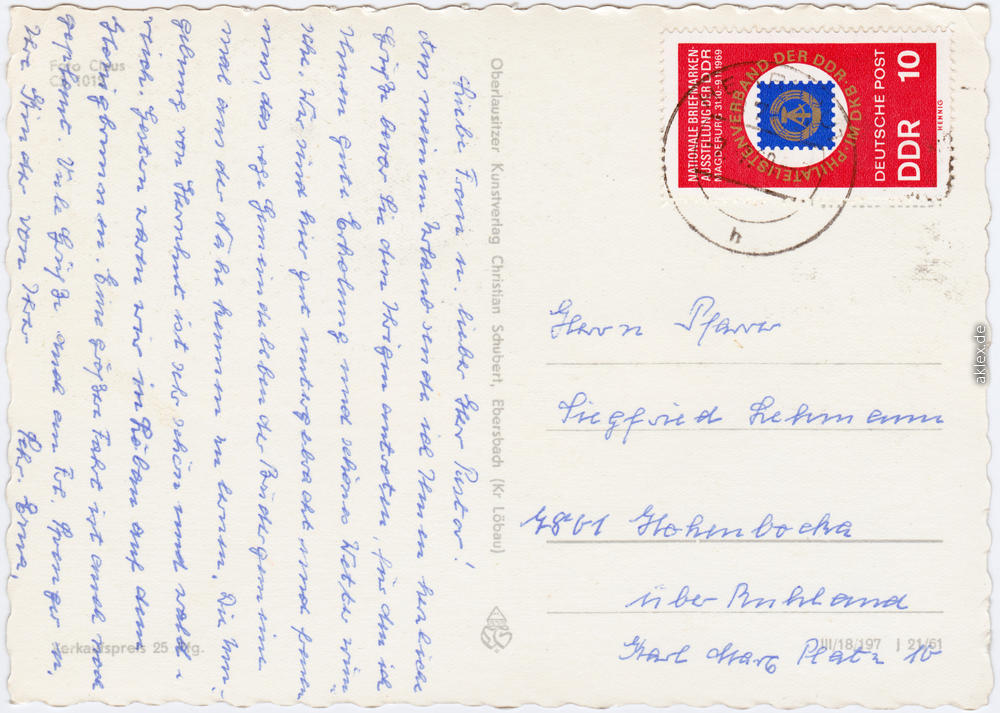 Liebe Frau u. lieber Herr Pastor!
Aus meinem Urlaub sende ich Ihnen herzliche
Grüße bevor Sie den Ihrigen antreten, für den ich
Ihnen gute Erholung und schönes Wetter wün-
sche. Wir sind hier gut untergebracht und freuen
uns, das rege Gemeindeleben der Brüdergemeine
mal aus der Nähe kennen zu lernen. Die Um-
gebung von Herrnhut ist sehr schön und wald-
reich. Gestern waren wir in Löbau auf dem
Honigbrunnen. Eine größere Fahrt ist auch noch
geplant. Viele Grüße auch an Frl.
Ihre Kinder von Ihrer
Schw. Erna.
Foto Claus
Verkaufspreis 25 Pfg.
Oberlausitzer Kunstverlag Christian Schubert, Ebersbach (Kr Löbau)
NATIONALE BRIEFMARKEN-
AUSSTELLUNG DER DDR
MAGDEBURG 31.10.-9.11.1969
PHILATELISTENVERBAND DER DDR·DKB·DMI
DEUTSCHE POST
DDR 10
h
Herrn Pfarrer
Siegfried Lehmann
7801 Hohenbocka
über Ruhland
Karl Marx Platz 16
III/18/197 J 21/61
aklex.de